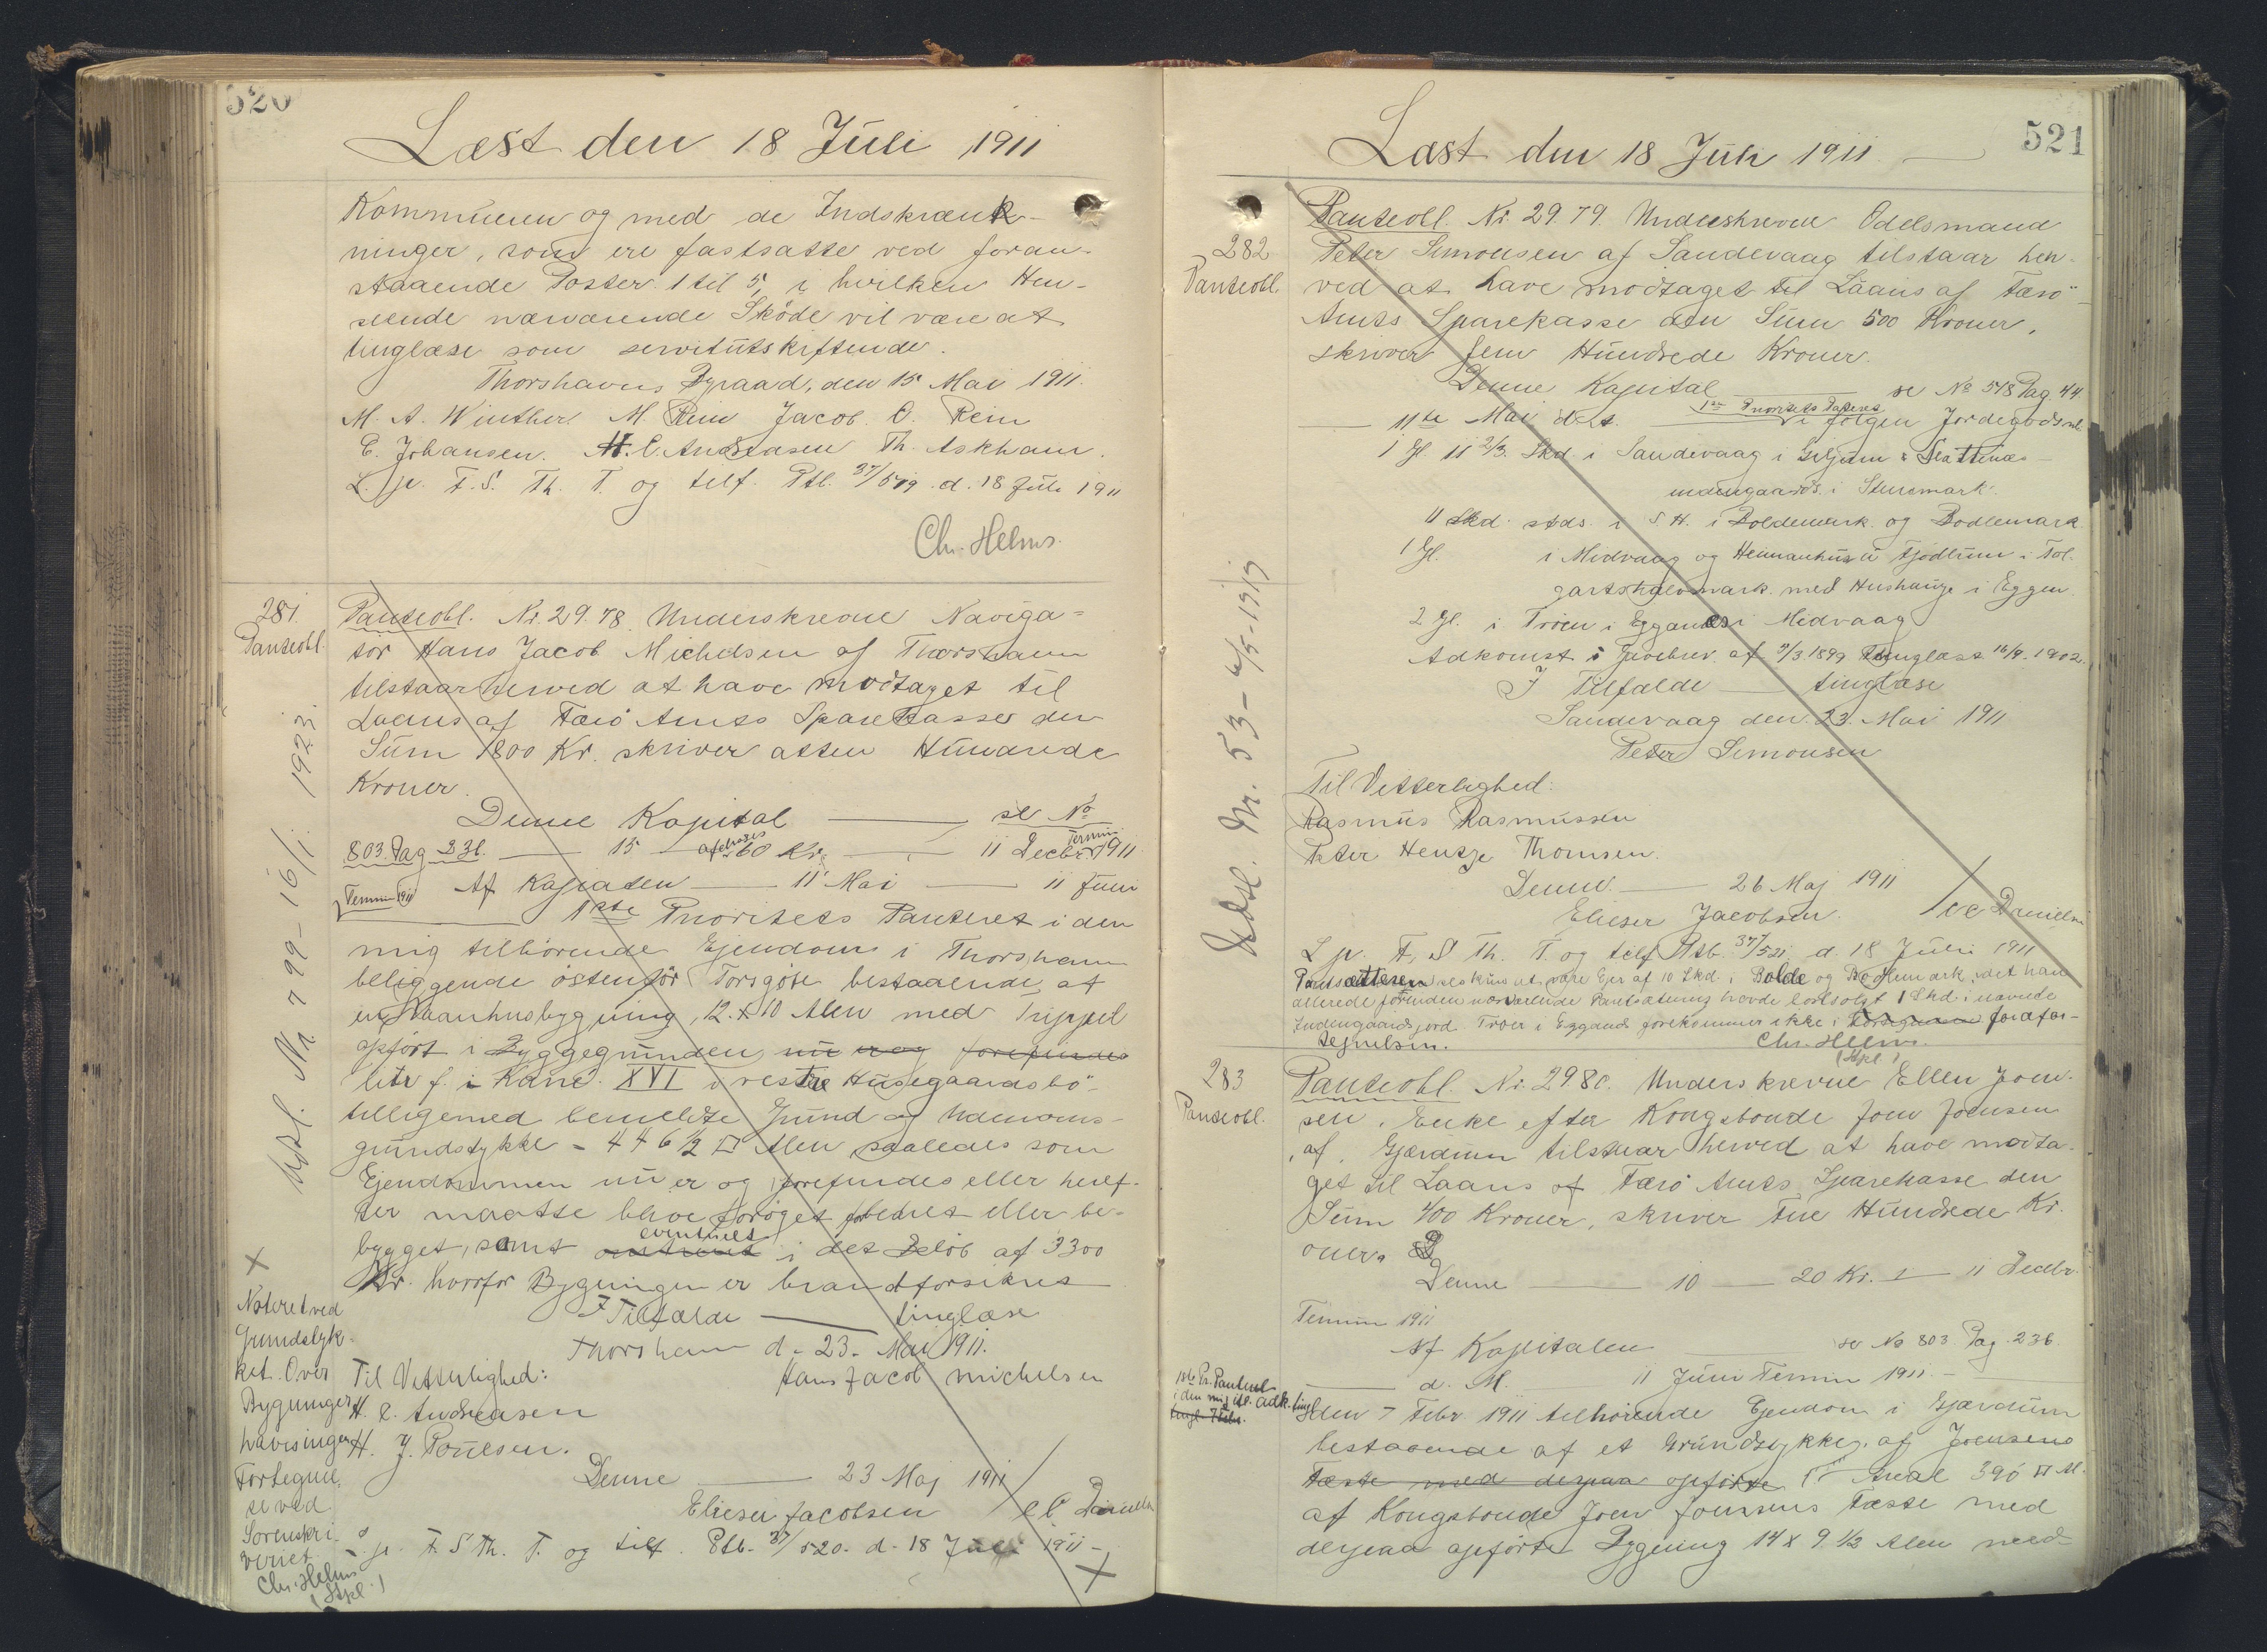 520
Læst den 18 Juli 1911
Kommunen og med de Indskrænk-
ninger, som ere fastsatte ved foran-
staaende Poster 1 til 5, i hvilken Hen-
seende nærværende Sköde vil være at
tinglæse som servitutstiftende.
Thorshavns Byraad, den 15 Mai 1911.
M. A. Winther M. Rein Jacob. O. Rein
E. Johansen. H. C. Andreasen Th. Askham.
L. p. F. S. Th. T. og tilf. Ptl. 37/519. d. 18 Juli 1911
Chr. Helms.
281.
Panteobl.
Panteobl. Nr. 29.78. Underskrevne Naviga-
tör Hans Jacob Michelsen af Thorshavn
tilstaar herved at have modtaget til
Laans af Færö Amts Sparekasse den
Sum 1800 Kr. skriver atten Hundrede
Kroner.
Denne Kapital se No
803. Pag 236. 15 afdrages 60 Kr. 11 Decbr. Termin 1911
Termin 1911 Af Kapitalen 11 Mai 11 Juni
1ste Prioritets Panteret i den
mig tilhörende Ejendom i Thorshavn
beliggende östenför Torsgöte bestaaende af
en Vaanhusbygning, 12 x 10 Alen med Trippel
opfört i Byggegrunden nu er og forefindes
litr f. i Kane. XVI i vestre Husegaardsbö-
tilligemed bemeldte Grund og Udenoms-
grundstykke = 446 1/2 □ Alen saaledes som
Ejendommen nu er og forefindes eller heref-
ter maatte blive foröget forbedret eller be-
bygget, samt eventuelt i det Belöb af 3300
Kr. hvorfor Bygningen er brandforsikret
I Tilfælde tinglæse
Thorshavn d. 23. Mai 1911.
Hans Jacob Michelsen
Til Vitterlighed:
H. C. Andreasen
H. J. Poulsen.
Denne 23 Maj 1911
Elieser Jacobsen / C C Danielsen
L. p. F. S Th. T. og tilf. Ptb. 37/520. d. 18 Juli 1911 -
X
Udsl. No 799 - 16/1. 1923.
X
Noteret ved
Grundstyk-
ket. Over
Bygninger
haves ingen
Fortegnel-
se ved
Sorenskri-
veriet.
Chr. Helms
(Stpl.)
521
Læst den 18 Juli 1911.
282
Panteobl.
Panteobl. Nr. 29.79. Underskrevne Odelsmand
Peter Simonsen af Sandevaag tilstaar her-
ved at have modtaget til Laans af Færö
Amts Sparekasse den Sum 500 Kroner,
skriver fem Hundrede Kroner.
Denne Kapital se No 518 Pag 44
11te Mai d. A. 1ste Prioritets Panteret i fölgen Jordegods
1 Gl 11 2/3 Skd i Sandevaag i Giljum & Slattenæs
indengaards i Steresmark.
11 Skd. stds. i S H. i Boldemark og Bodlemark
1 Gl. i Midvaag og Heimanhusa Fjödlum i Tol-
gartshalvmark med Hushauge i Eggen.
2 Gl. i Trien i Eggandes i Midvaag
Adkomst i Gavebrev af 9/3. 1899 tinglæst 16/9. 1902.
I Tilfælde tinglæse
Sandevaag den 23. Mai 1911
Peter Simonsen
Til Vitterlighed:
Rasmus Rasmussen
Peter Hentze Thomsen.
Denne 26 Maj 1911
Elieser Jacobsen. / C C Danielsen
L p. F. S Th. T. og tilf. Ptb. 37/521 d. 18 Juli 1911
Pantsætteren ses kun at være Ejer af 10 Skd. i Bolde og Bodlemark, idet han
allerede forinden nærværende Pantsætning havde bortsolgt 1 Skd. i nævnte
Indengaards jord. Troer i Eggands forekommer ikke i foranför-
tegnelsen.
Chr. Helms.
(Stpl.)
Udsl. Nr. 53 - 4/5 - 1919
283
Panteobl.
Panteobl. Nr. 2980. Underskrevne Ellen Joen-
sen, Enke efter Kongsbonde Joen Joensen
af Gjærdum tilstaar herved at have modta-
get til Laans af Færö Amts Sparekasse den
Sum 400 Kroner, skriver fire Hundrede Kr.
oner.
Denne 10 20 Kr. 11 Decbr.
Termin 1911
Af Kapitalen se No 803 Pag. 236
d. M. 11 Juni Termin 1911.
1ste Pr. Panteret
i den mig itl. Adk. tingl
den 7 Febr. 1911 tilhörende Ejendom i Gjærdum
bestaaende af et Grundstykke, af Joensens
Fæste med derpaa opförte Areal 390 □ Al.
af Kongsbonde Joen Joensens Fæste med
derpaa opförte Bygning 14 x 9 1/2 Alen med